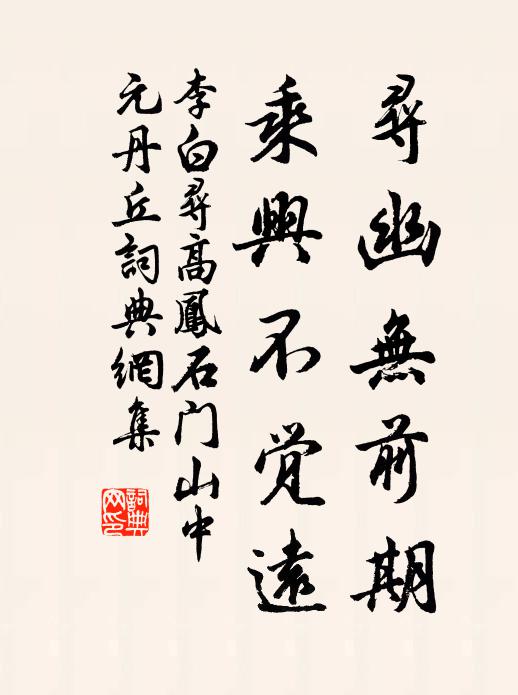 尋幽無前期
乘興不覺遠
李白尋高鳳石门山中
元丹丘詞典網集
詞典
网印